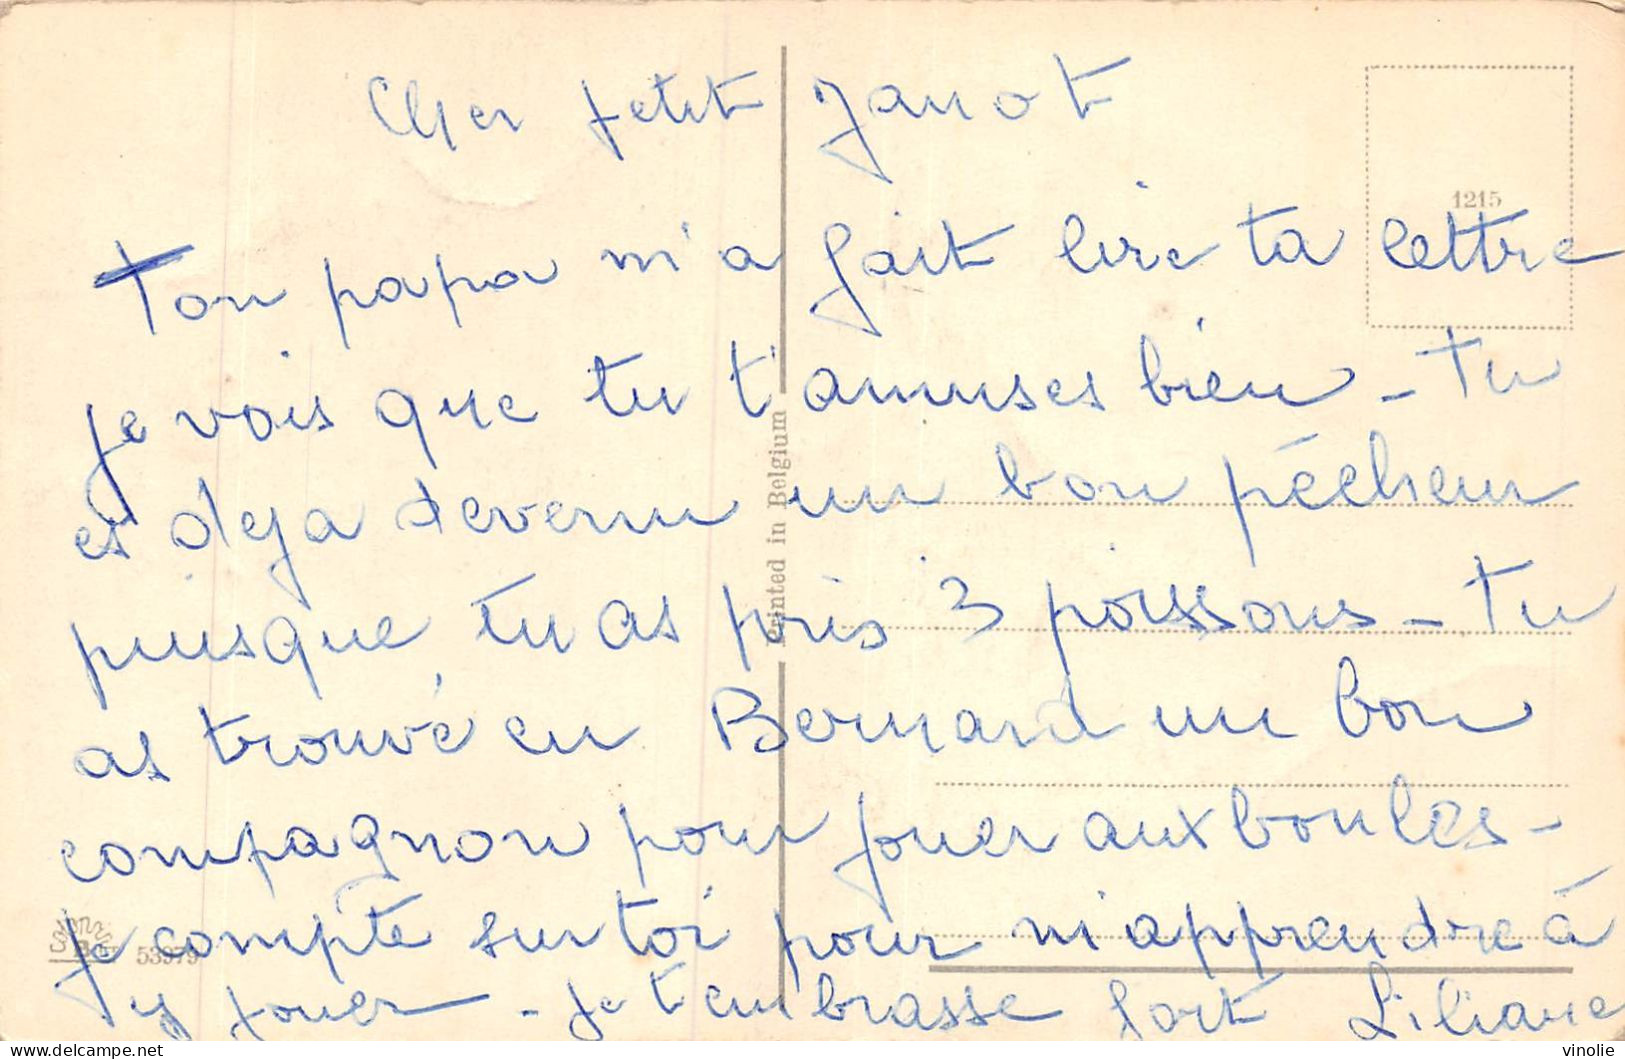 Cher petit Janot
1215
Ton papa m'a fait lire ta lettre
je vois que tu t'amuses bien - tu
es deja devenu un bon pécheur
puisque tu as pris 3 poissons - tu
as trouvé en Bernard un bon
compagnon pour jouer aux boules -
Je compte sur toi pour m'apprendre à
y jouer - je t'embrasse fort Liliane
Printed in Belgium
53979
vinolie